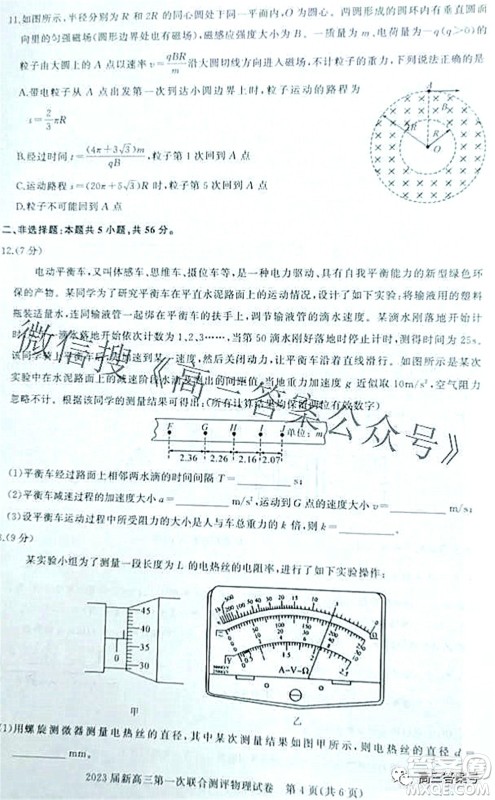 11.如图所示,半径分别为R和2R的同心圆处于同一平面内,O为圆心。两圆形成的圆环内有垂直圆面
向里的匀强磁场(圆形边界处也有磁场),磁感应强度大小为B。一质量为m、电荷量为-q(q>0)的
粒子由大圆上的A点以速率v=qBR/m沿大圆切线方向进入磁场,不计粒子的重力,下列说法正确的是
A.带电粒子从A点出发第一次到达小圆边界上时,粒子运动的路程为
s=2/3πR
B.经过时间t=(4π+3√3)m/qB,粒子第1次回到A点
C.运动路程s=(20π+5√3)R时,粒子第5次回到A点
D.粒子不可能回到A点
A
B
R
2R
O
二、非选择题:本题共5小题,共56分。
12.(7分)
电动平衡车,又叫体感车、思维车、摄位车等,是一种电力驱动、具有自我平衡能力的新型绿色环
保的产物。某同学为了研究平衡车在平直水泥路面上的运动情况,设计了如下实验:将输液用的塑料
瓶装适量水,连同输液管一起绑在平衡车的扶手上,调节输液管的滴水速度。某滴水刚落地开始计
时,从下一滴水落地开始依次计数为1、2、3、……,当第50滴水刚好落地时停止计时,测得时间为25s。
该同学骑上平衡车后加速到某一速度,然后关闭动力,让平衡车沿着直线滑行。如图所示是某次
实验中在水泥路面上的减速阶段水滴及运动的间距值,当地重力加速度g近似取10m/s²,空气阻力
忽略不计。根据该同学的测量结果可得出:(所有计算结果均保留两位有效数字)
F G H I J 单位:m
2.36 2.26 2.16 2.07
(1)平衡车经过路面上相邻两水滴的时间间隔T= s;
(2)平衡车减速过程的加速度大小a= m/s²,运动到G点的速度大小v= m/s;
(3)设平衡车运动过程中所受阻力的大小是人与车总重力的k倍,则k= 。
(9分)
某实验小组为了测量一段长度为L的电热丝的电阻率,进行了如下实验操作:
0
45
40
35
30
甲
A-V-Ω
乙
(1)用螺旋测微器测量电热丝的直径,其中某次测量结果如图甲所示,则电热丝的直径d=
mm。
2023届新高三第一次联合测评物理试卷 第4页(共6页)
微信搜《高三答案公众号》
高三答案号